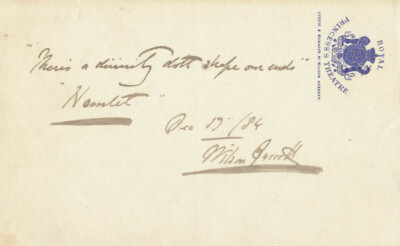 "There's a divinity doth shape our ends"
"Hamlet"
Dec 19"/84
Wilson Barrett
ROYAL
PRINCESS'S THEATRE
LESSEE & MANAGER, MR WILSON BARRETT.